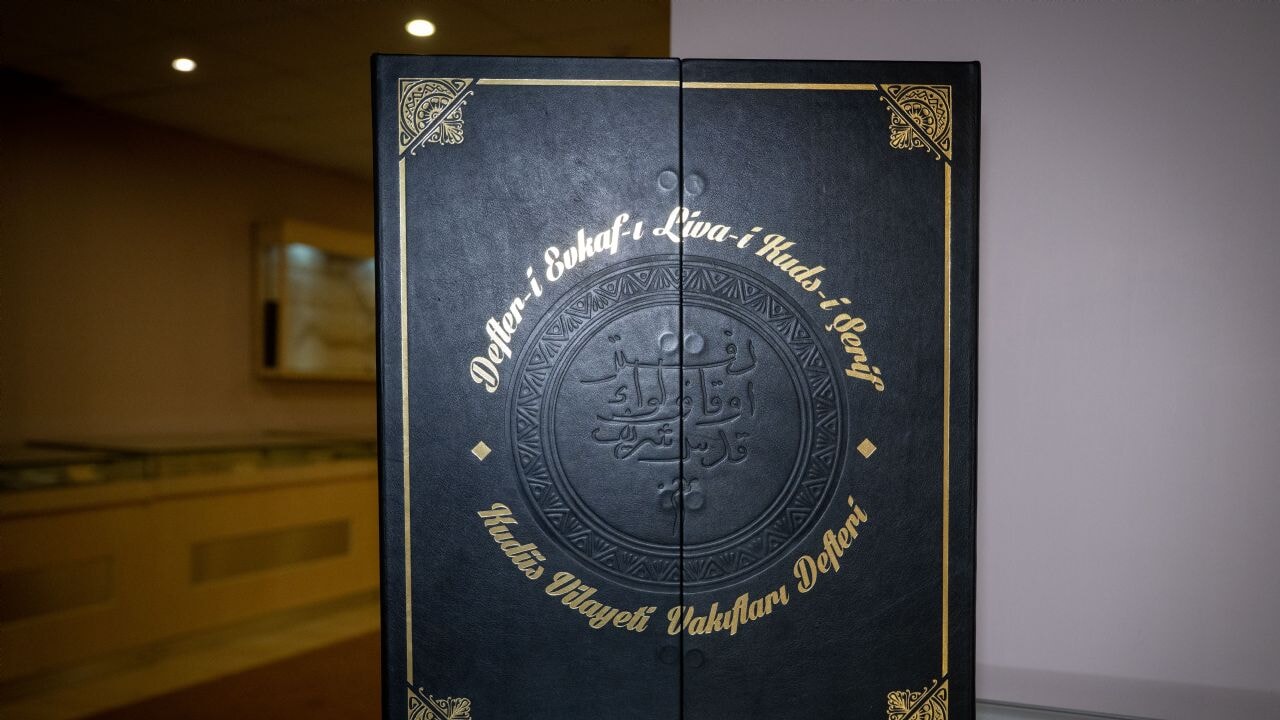 Defter-i Evkaf-ı Liva-i Kuds-i Şerif
دفتر
اوقاف لواء
قدس شريف
Kudüs Vilayeti Vakıfları Defteri